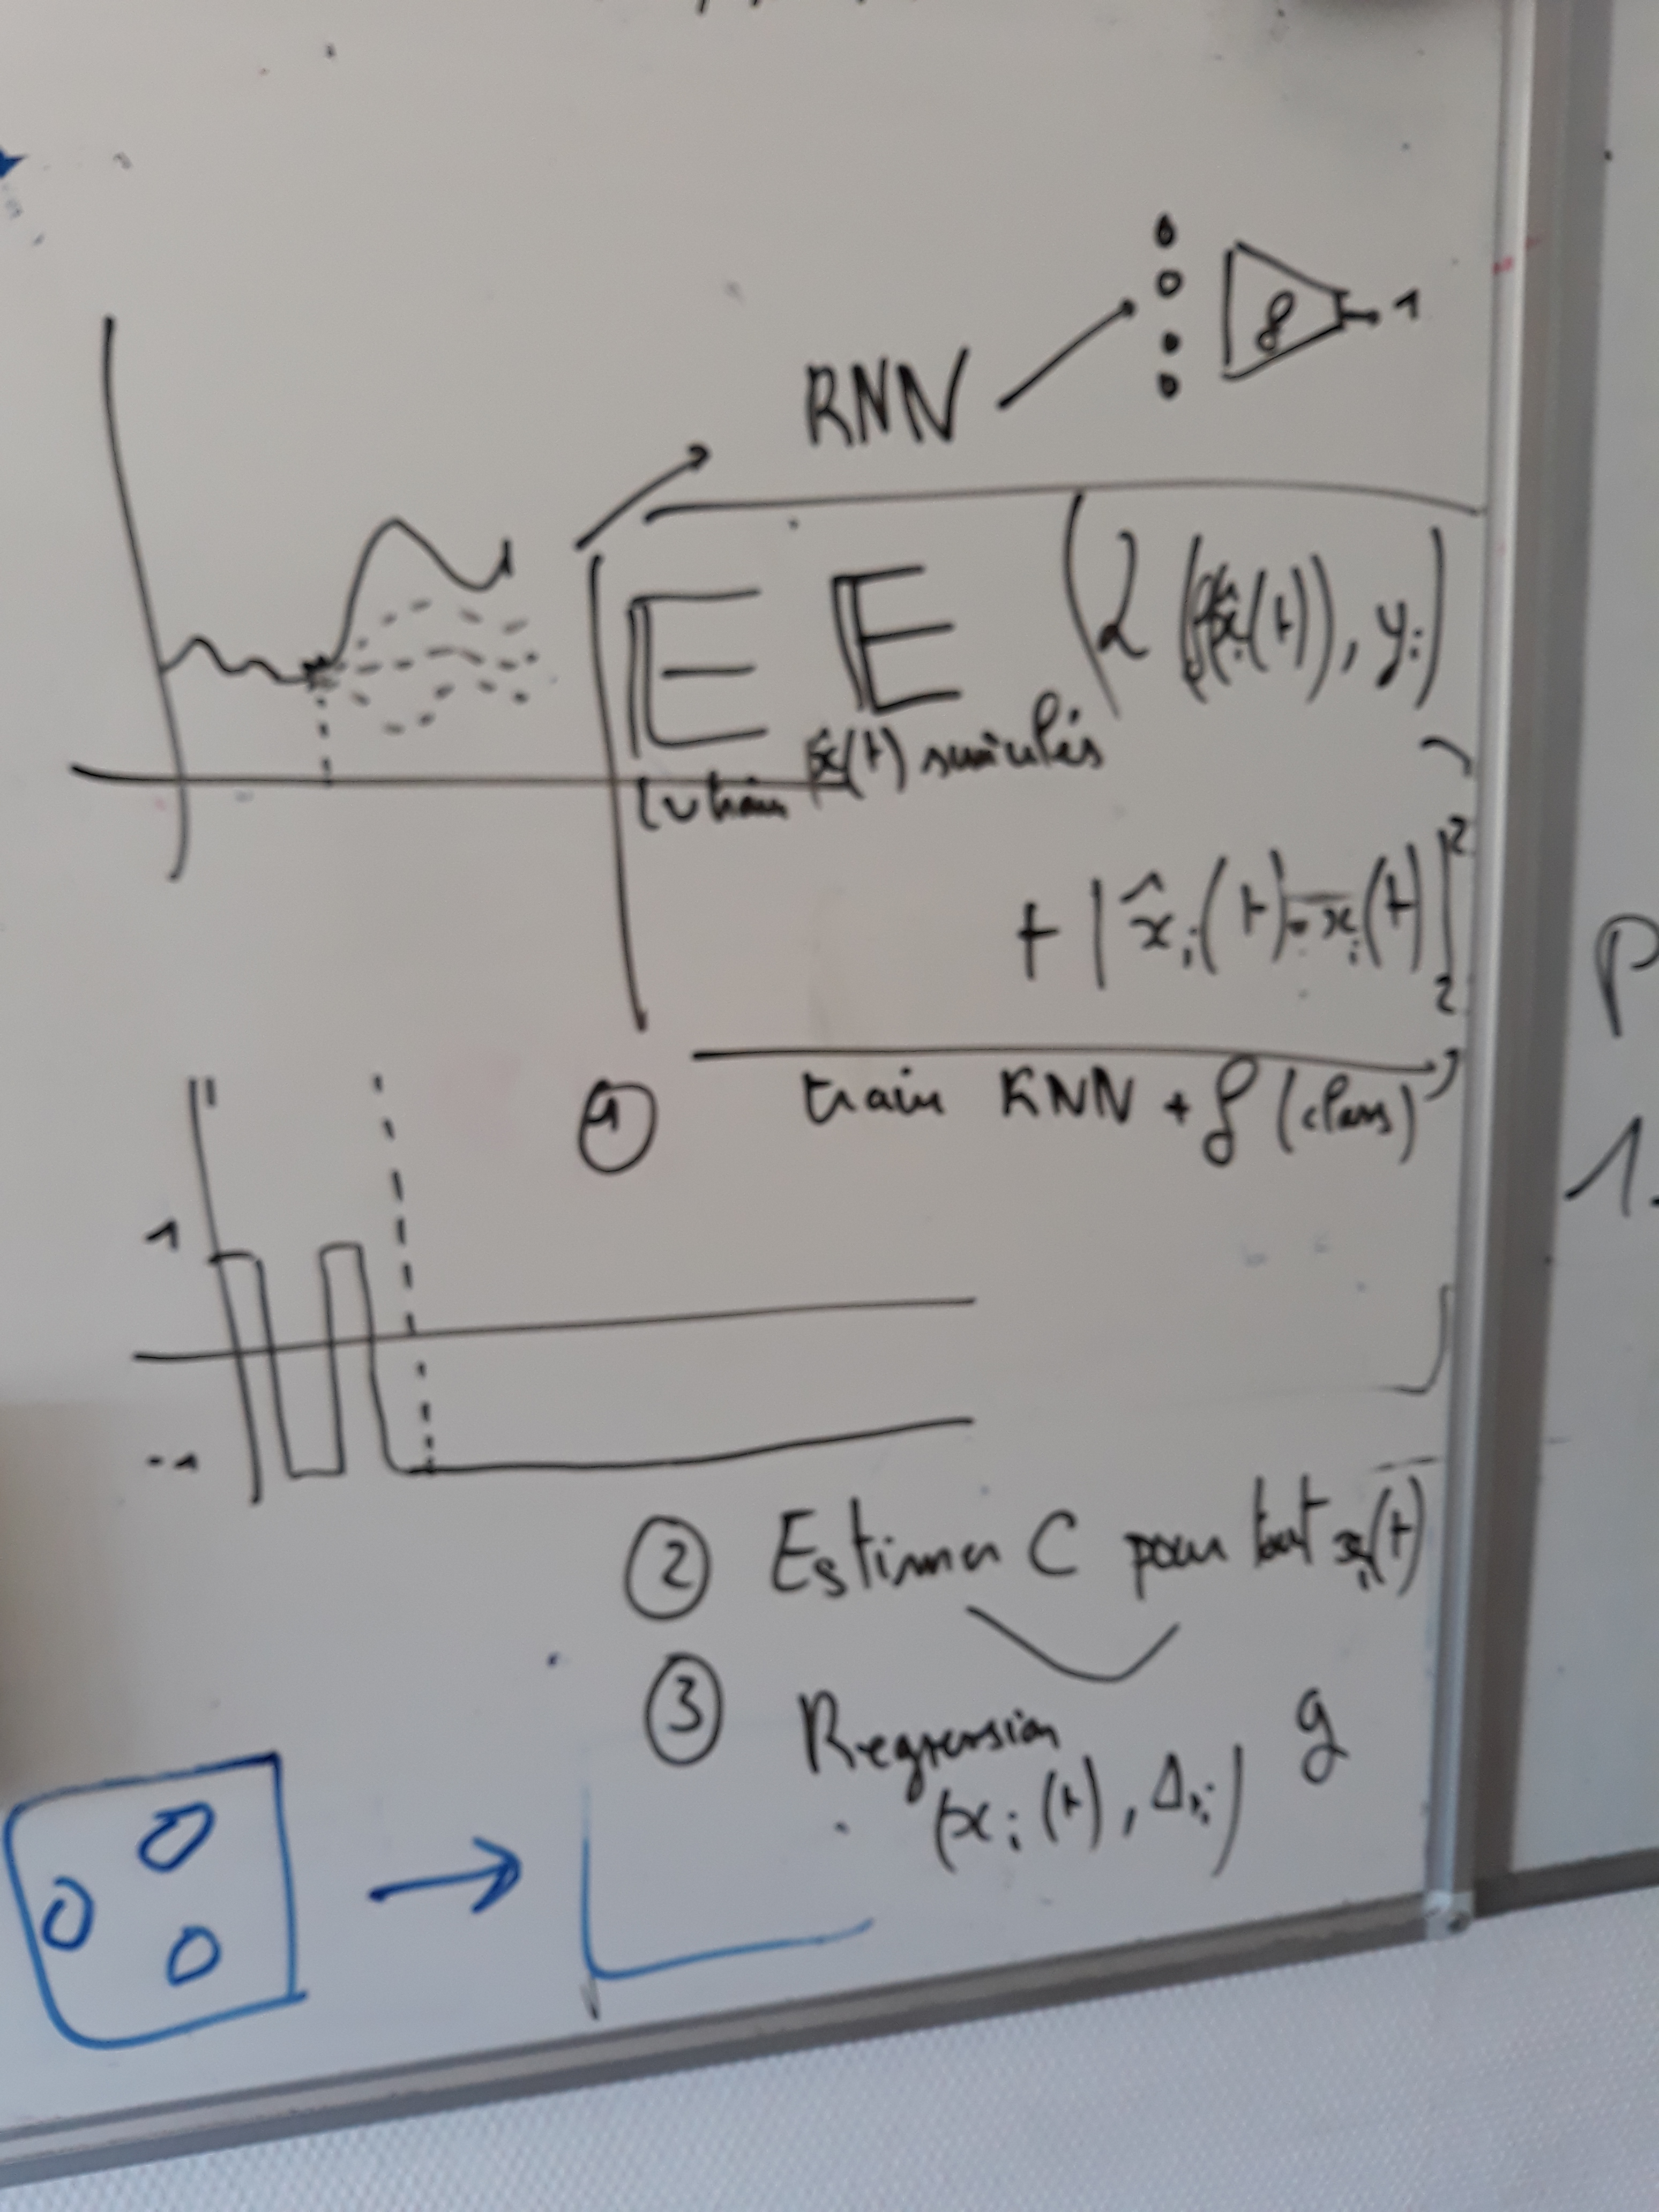 RNN
1
E E (L (f(x̂ᵢ(t)), yᵢ)
x̂(t) simulés
+ |x̂ᵢ(t) - xᵢ(t)|²₂
① train RNN + f (class)
1
-1
② Estimer C pour tout xᵢ(t)
③ Regression g
(xᵢ(t), Δᵢ)
P
1.